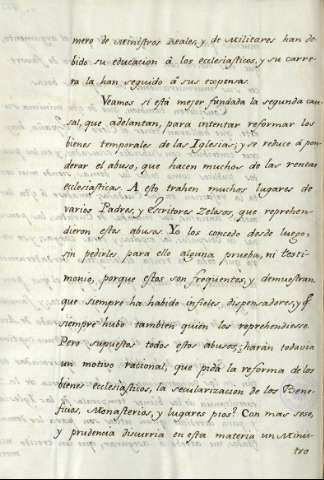 mero de Ministros Reales, y de Militares han de-
bido su educacion â los ecclesiasticos, y su carre-
ra la han seguido â sus expensas.
Veamos si està mejor fundada la segunda cau-
sal, que adelantan, para intentar reformar los
bienes temporales de las Iglesias; y se reduce â pon-
derar el abuso, que hacen muchos de las rentas
ecclesiasticas. A esto trahen muchos lugares de
varios Padres, y Escritores zelosos, que reprehen-
dieron estos abusos. Yo los concedo desde luego,
sin pedirles para ello alguna prueba, ni testi-
monio, porque estos son freqüentes, y demuestran
que siempre ha habido infieles dispensadores, y q̃
siempre hubo tambien quien los reprehendiesse.
Pero supuestos todos estos abusos, ¿harán todavia
un motivo racional, que pida la reforma de los
bienes ecclesiasticos, la secularizacion de los Bene-
ficios, Monasterios, y lugares pios? Con mas seso,
y prudencia discurria en esta materia un Minis-
tro